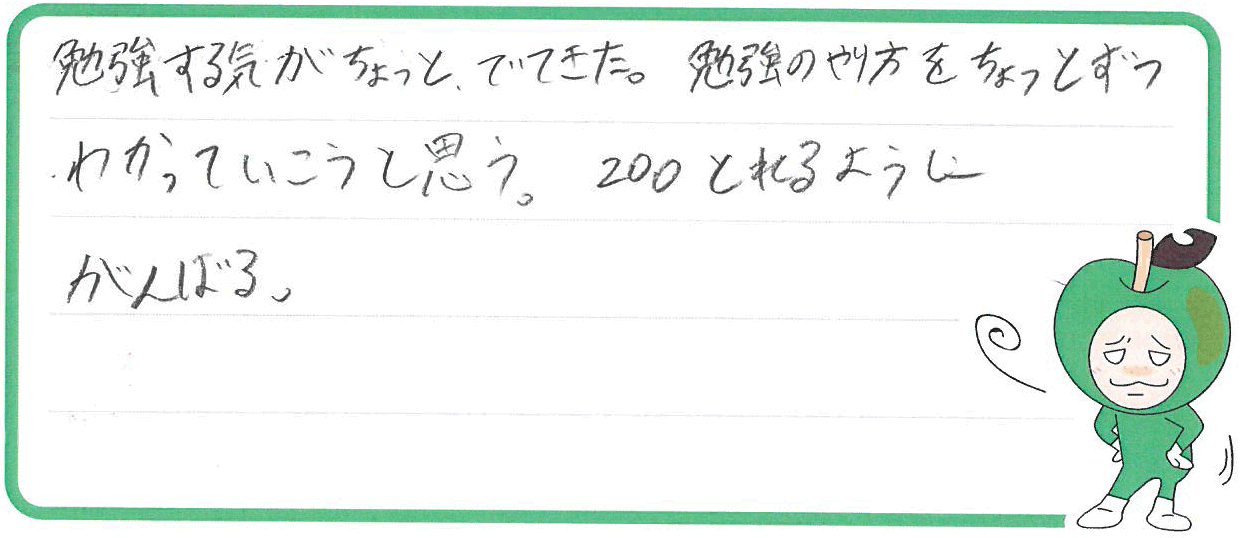 勉強する気がちょっと、でてきた。 勉強のやり方をちょっとずつ
わかっていこうと思う。 200とれるように
がんばる。